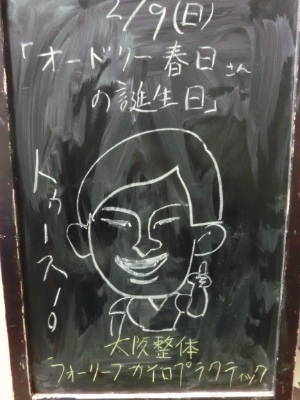 2/9(日)
「オードリー春日さん
の誕生日」
トゥース!!
大阪整体
フォーリーフカイロプラクティック